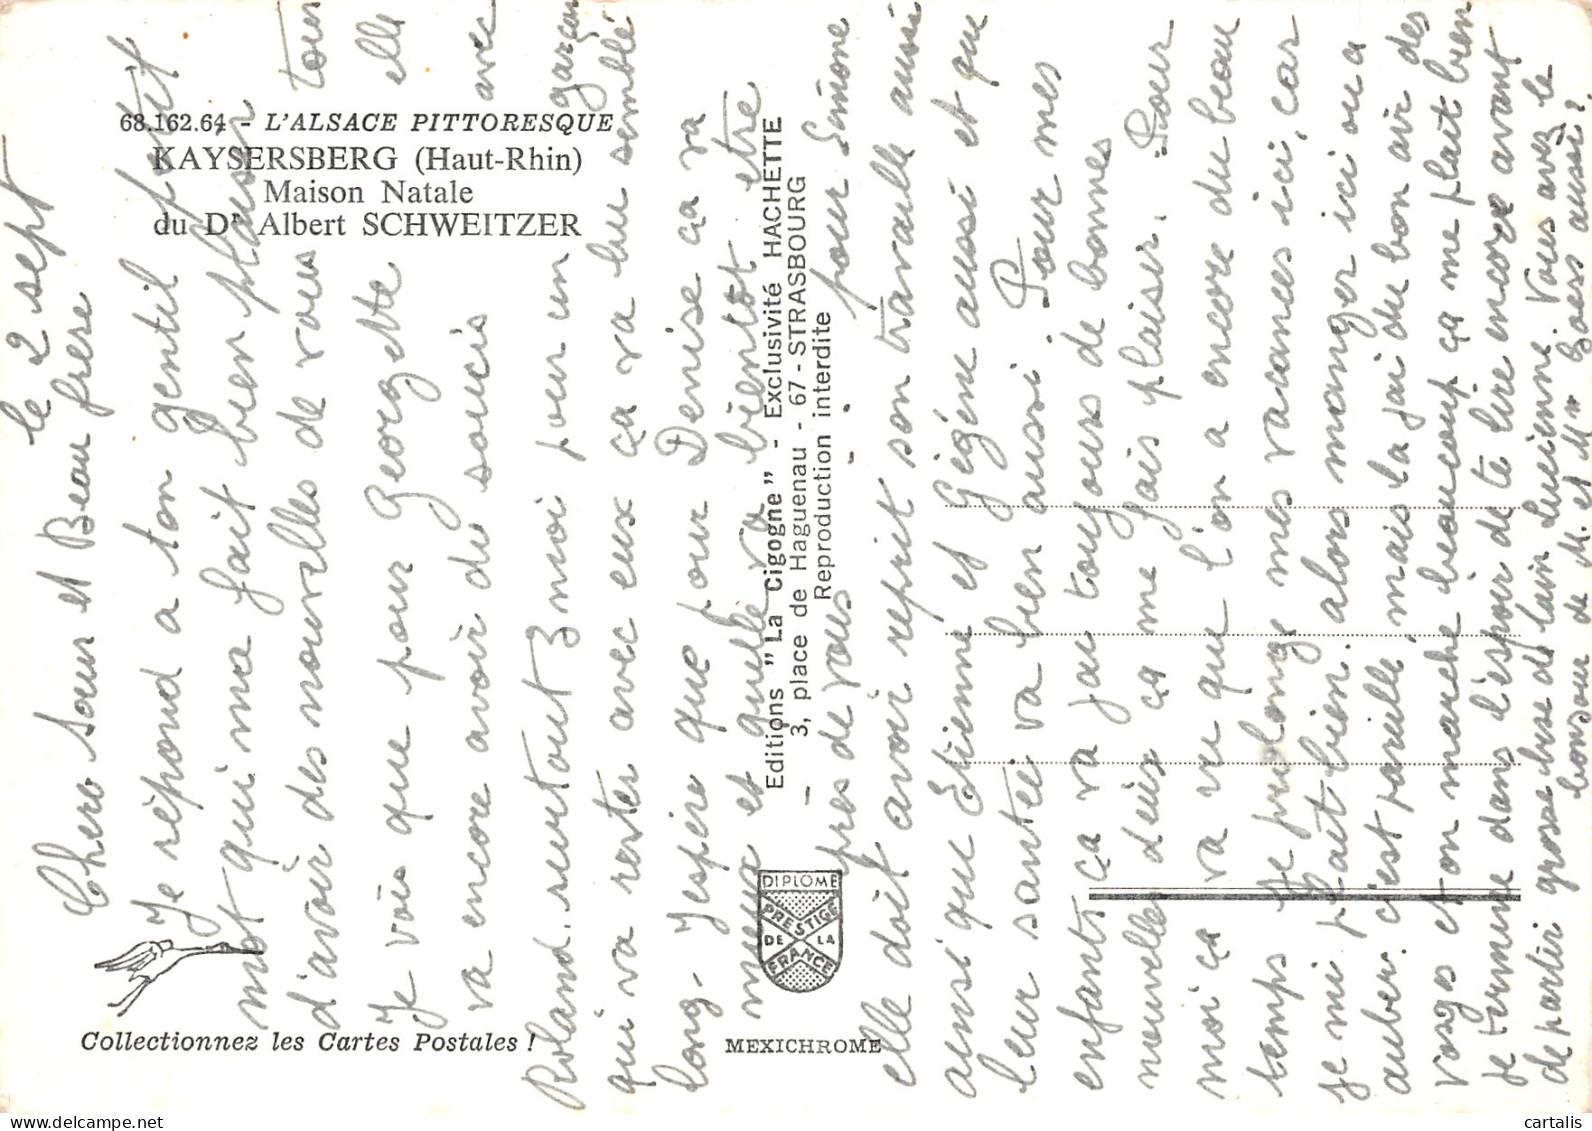 68.162.64 - L'ALSACE PITTORESQUE
KAYSERSBERG (Haut-Rhin)
Maison Natale
du Dr Albert SCHWEITZER
Collectionnez les Cartes Postales !
DIPLOME
PRESTIGE
DE LA
FRANCE
MEXICHROME
Editions "La Cigogne" - Exclusivité HACHETTE
- 3, place de Haguenau - 67 - STRASBOURG -
Reproduction interdite
le 2 sept
Chers Sœur et Beau frère
Je répond a ton gentil petit
mot qui ma fait bien plaisir
d'avoir des nouvelles de vous tous
Je vois que pour Georgette elle
va encore avoir du soucis avec
Roland. surtout 3 moi pour un garçon
qui va rester avec eux ça va lui semblé
long - J'espère que pour Denise ça va
mieux et quelle va bientot être
près de vous pour Simone
elle doit avoir reprit son travaille aussi
ainsi que Etienne et Gégène aussi et que
leur santée va bien aussi. Pour mes
enfants ça va j'ai toujours de bonnes
nouvelles d'eux ça me fais plaisir. Pour
moi ça va vu que l'on a encore du beau
temps je prolonge mes vacances ici, car
je mi plait bien. alors manger ici ou a
auber. c'est pareille mais la j'ai du bon air des
vosges et on marche beaucoup ça me plait bien
Je termine dans l'espoir de te lire encore avant
de partir grosse bise de loin Lucienne Vous avez le
bonjour de M. et Mm aussi ?
cartalis